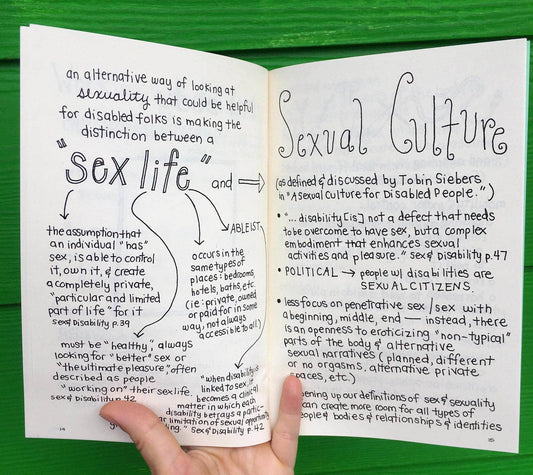 an alternative way of looking at
sexuality that could be helpful
for disabled folks is making the
distinction between a
"sex life" and
the assumption that
an individual "has"
sex, is able to control
it, own it, & create
a completely private,
"particular and limited
part of life" for it
Sex & Disability p.39
must be "healthy", always
looking for "better" sex or
"the ultimate pleasure", often
described as people
"working on" their sex life.
sex & Disability p.42
occurs in the
same types of
places: bedrooms,
hotels, baths, etc.
(ie: private, owned
or paid for in some
way, not always
accessible to all)
ABLEIST
"when disability is
linked to sex, it
becomes a clinical
matter in which each
disability betrays a partic-
ar limitation of sexual opportunity
." Sex & Disability p.42
14
Sexual Culture
(as defined & discussed by Tobin Siebers
in "A Sexual Culture for Disabled People.")
• "... disability [is] not a defect that needs
to be overcome to have sex, but a complex
embodiment that enhances sexual
activities and pleasure." Sex & Disability p.47
• POLITICAL → people w/ disabilities are
SEXUAL CITIZENS.
• less focus on penetrative sex / sex with
a beginning, middle, end — instead, there
is an openness to eroticizing "non-typical"
parts of the body & alternative
sexual narratives (planned, different
or no orgasms, alternative private
spaces, etc.)
pening up our definitions of sex & sexuality
can create more room for all types of
people & bodies & relationships & identities
15